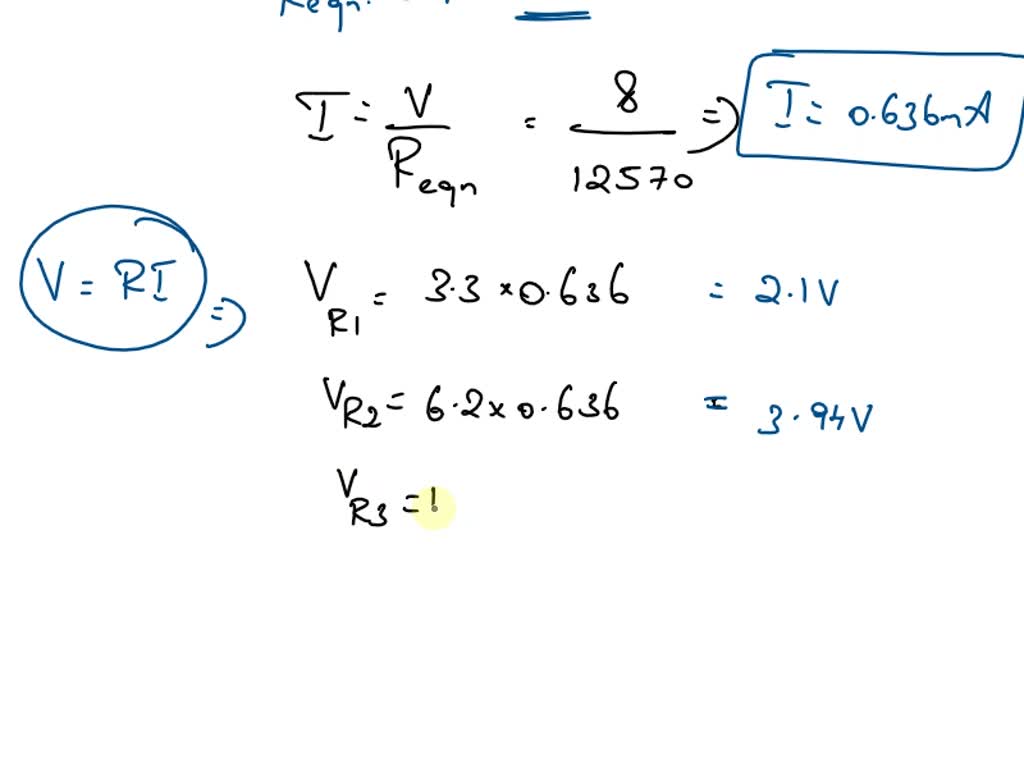 Reqn.
I = V / Reqn = 8 / 12570 => I = 0.636mA
V = RI => VR1 = 3.3 × 0.636 = 2.1V
VR2 = 6.2 × 0.636 = 3.94V
VR3 =